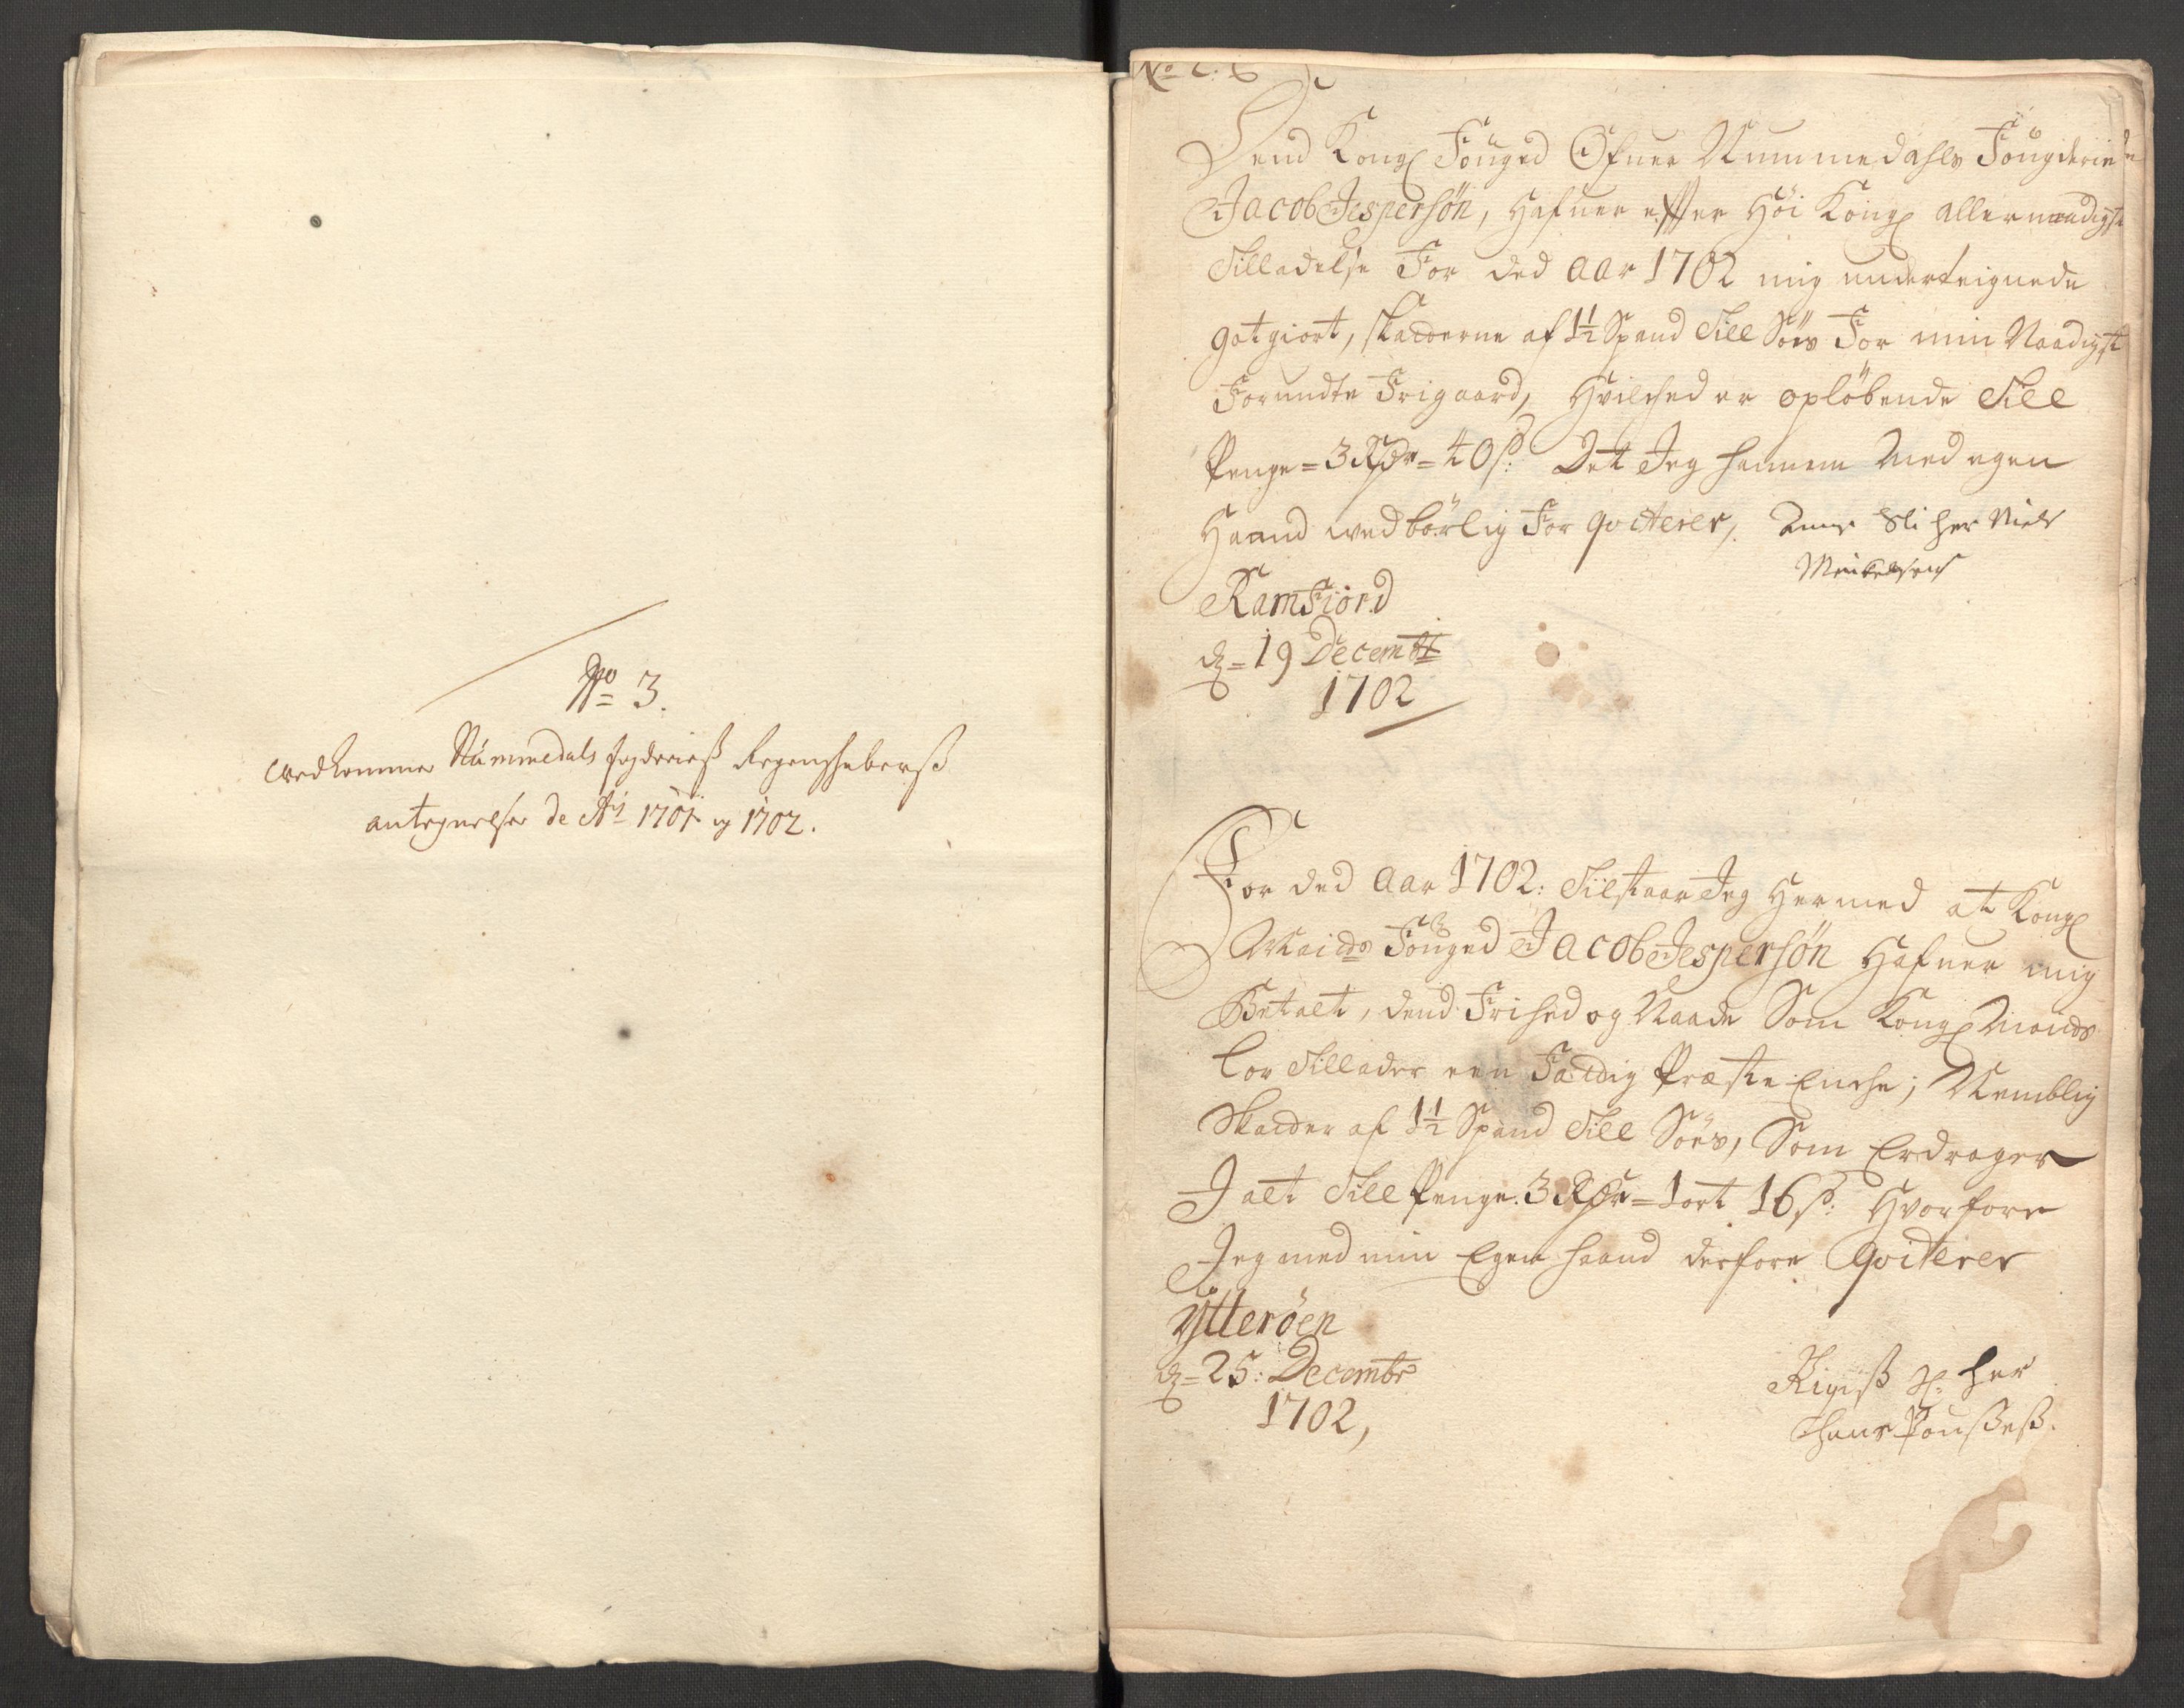 No 3.
Wedkommer Nummedals fogderiesß Regenskaberß
antegnelser de Ao 1701 og 1702.
Dend Kongl Fouged Ofuer Nummedahls Fougderie
Jacob Jespersøn, Hafuer effter Høi Kongl allernaadigste
Tilladelse For ded Aar 1702 mig underteignede
gotgiort, skatterne af 1½ Spand Till Søes For min Naadigst
Forundte Frigaard, Hvilched er opløbende Till
Penge = 3 Rdr = 40 s: Det Jeg hannem Med egen
Haand wedbørlig For qvitterer, Anne Sl: her Niels
Mickelsøns
Ramfiord
d = 19 Decembr
1702
For ded Aar 1702: Tilstaar Jeg Hermed at Kongl
Maits Fouged Jacob Jespersøn Hafuer mig
Betalt, dend Frihed og Naade Som Kongl Maits
Lov Tillader een Fattig Præste Enche; Nemblig
Skatter af 1½ Spand Till Søes, Som Erdrager
J alt Till Penge. 3 Rdr = 1 ort 16 s: Hvorfore
Jeg med min Egen haand derfore Qvitterer
Ytterøen
d = 25: Decembr
1702,
her
Hans